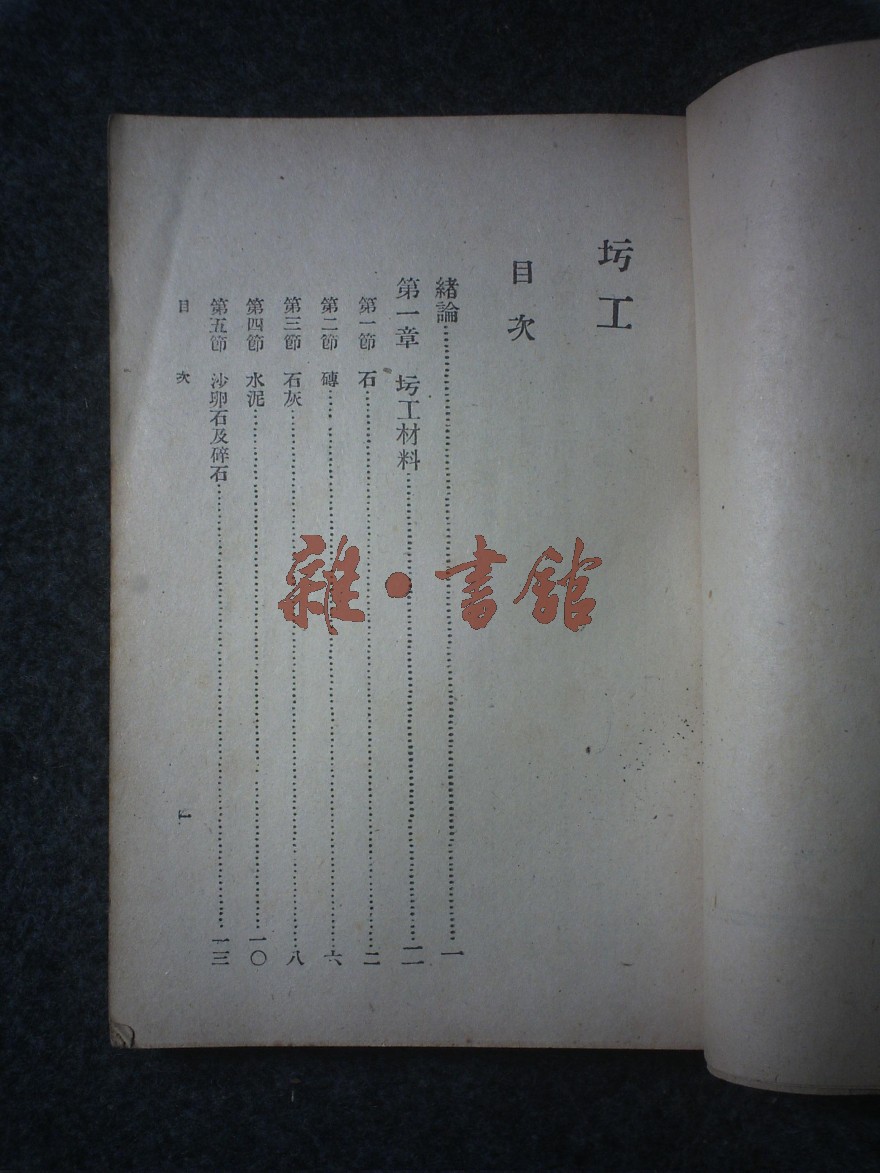 圬工
目次
緒論……一
第一章 圬工材料……二
第一節 石……二
第二節 磚……六
第三節 石灰……八
第四節 水泥……一〇
第五節 沙卵石及碎石……一三
目次 一
雜·書館